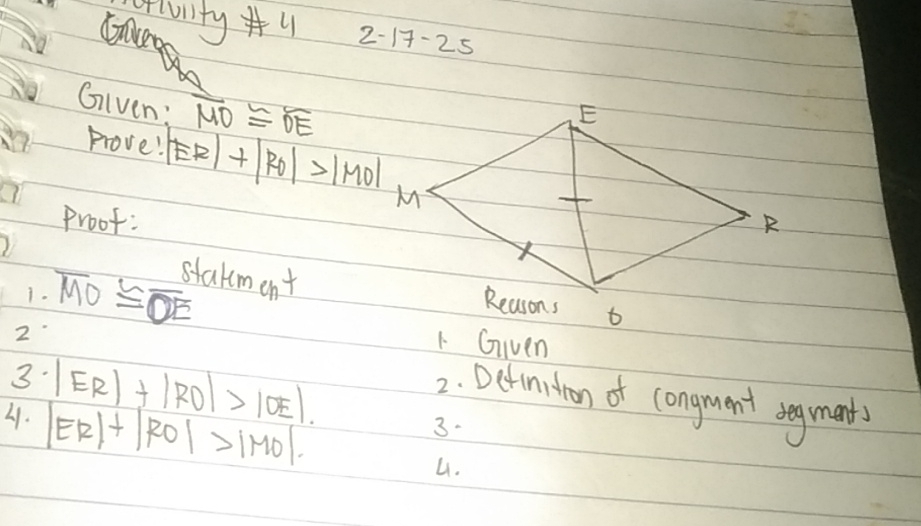 Activity # 4 2-17-25
Given: MO ≅ OE
Prove: |ER| + |RO| > |MO|
E
M
R
O
Proof:
Statement
Reasons
1. MO ≅ OE
1. Given
2.
2. Definition of congruent segments
3. |ER| + |RO| > |OE|.
3.
4. |ER| + |RO| > |MO|.
4.